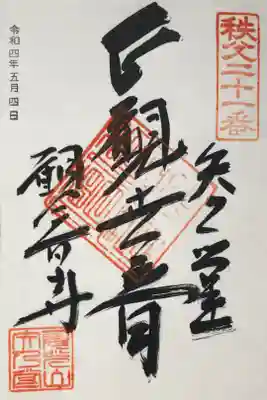 秩父二十一番
矢之堂
正觀世音
觀音寺
令和四年五月四日